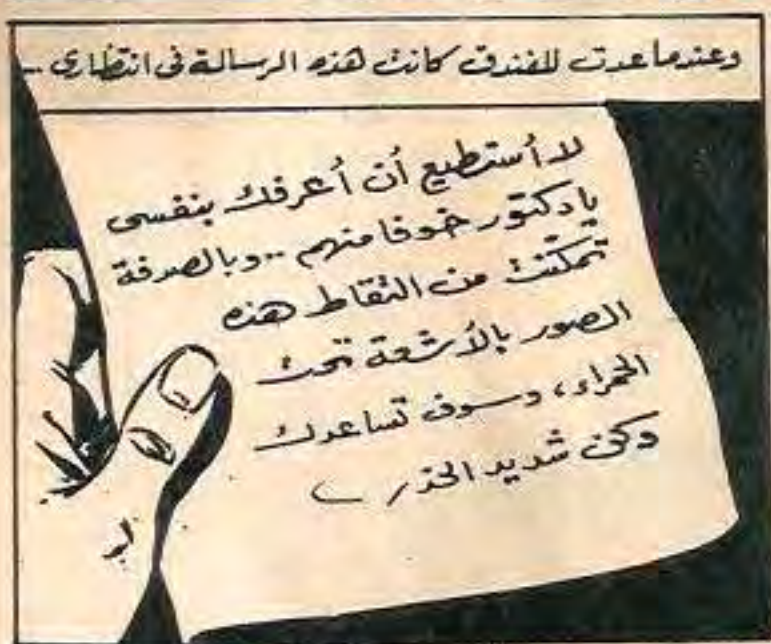 وعندما عدت للفندق كانت هذه الرسالة فى انتظارى ..
لا أستطيع أن أعرفك بنفسى
يا دكتور خوفا منهم .. وبالصدفة
تمكّنت من التقاط هذه
الصور بالأشعة تحت
الحمراء، وسوف تساعدك
وكن شديد الحذر